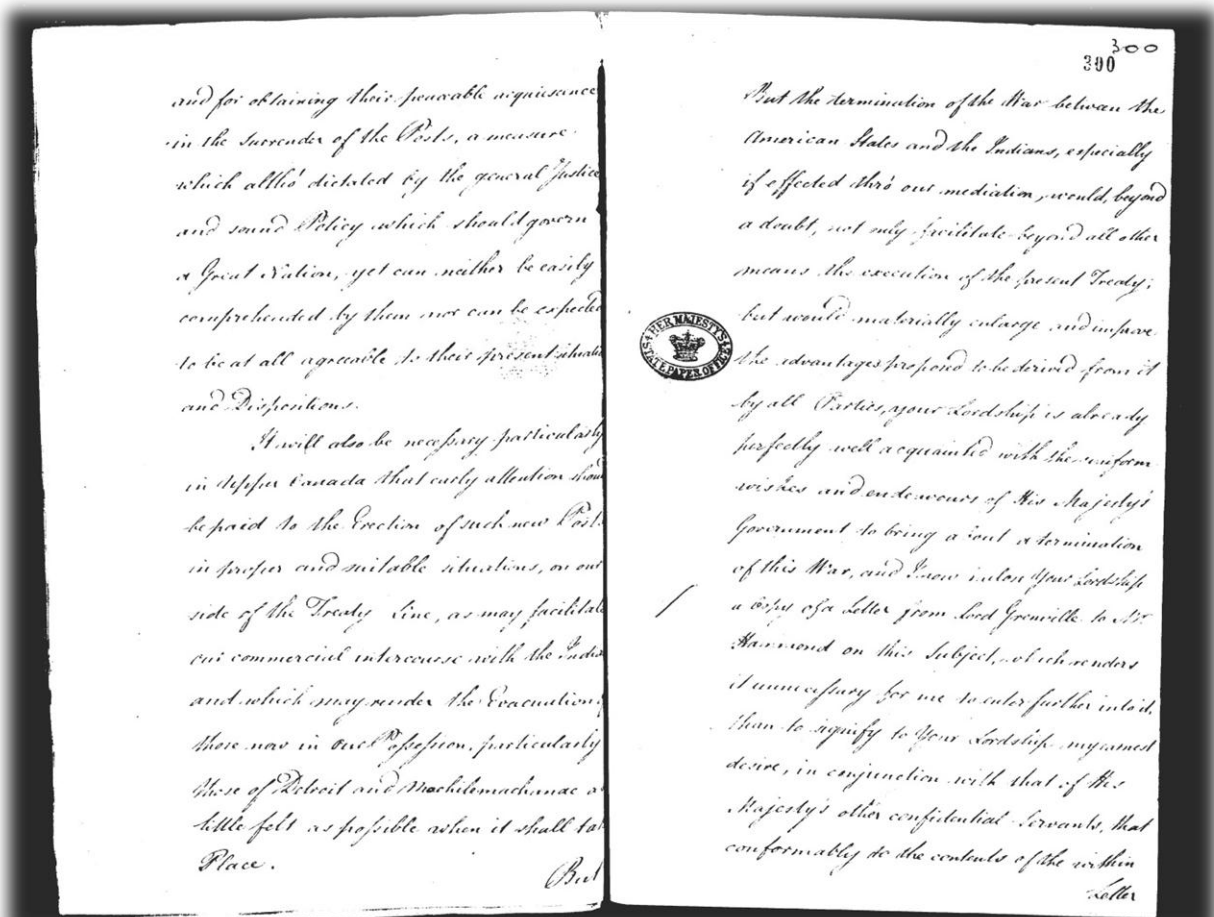 and for obtaining their peaceable acquiescence
in the Surrender of the Posts, a measure
which altho' dictated by the general Justice
and sound Policy which should govern
a Great Nation, yet can neither be easily
comprehended by them nor can be expected
to be at all agreeable to their present situatio
and Dispositions.
It will also be necessary particularly
in Upper Canada that early attention shou
be paid to the Erection of such new Posts
in proper and suitable situations, on our
side of the Treaty Line, as may facilitate
our commercial intercourse with the India
and which may render the Evacuation
those now in our Possession, particularly
those of Detroit and Machilemachanac a
little felt as possible when it shall tak
Place.
But
300
300
But the termination of the War between the
American States and the Indians, especially
if effected thro' our mediation, would, beyond
a doubt, not only facilitate beyond all other
means the execution of the present Treaty;
but would materially enlarge and improve
the advantages proposed to be derived from it
by all Parties, your Lordship is already
perfectly well acquainted with the uniform
wishes and endeavours of His Majesty's
Government to bring about a termination
of this War, and I now inclose Your Lordship
a Copy of a Letter from Lord Grenville to Mr.
Hammond on this Subject, which renders
it unnecessary for me to enter further into it
than to signify to Your Lordship my earnest
desire, in conjunction with that of His
Majesty's other confidential Servants, that
conformably to the contents of the within
Letter
HER MAJESTY'S
STATE PAPER OFFICE